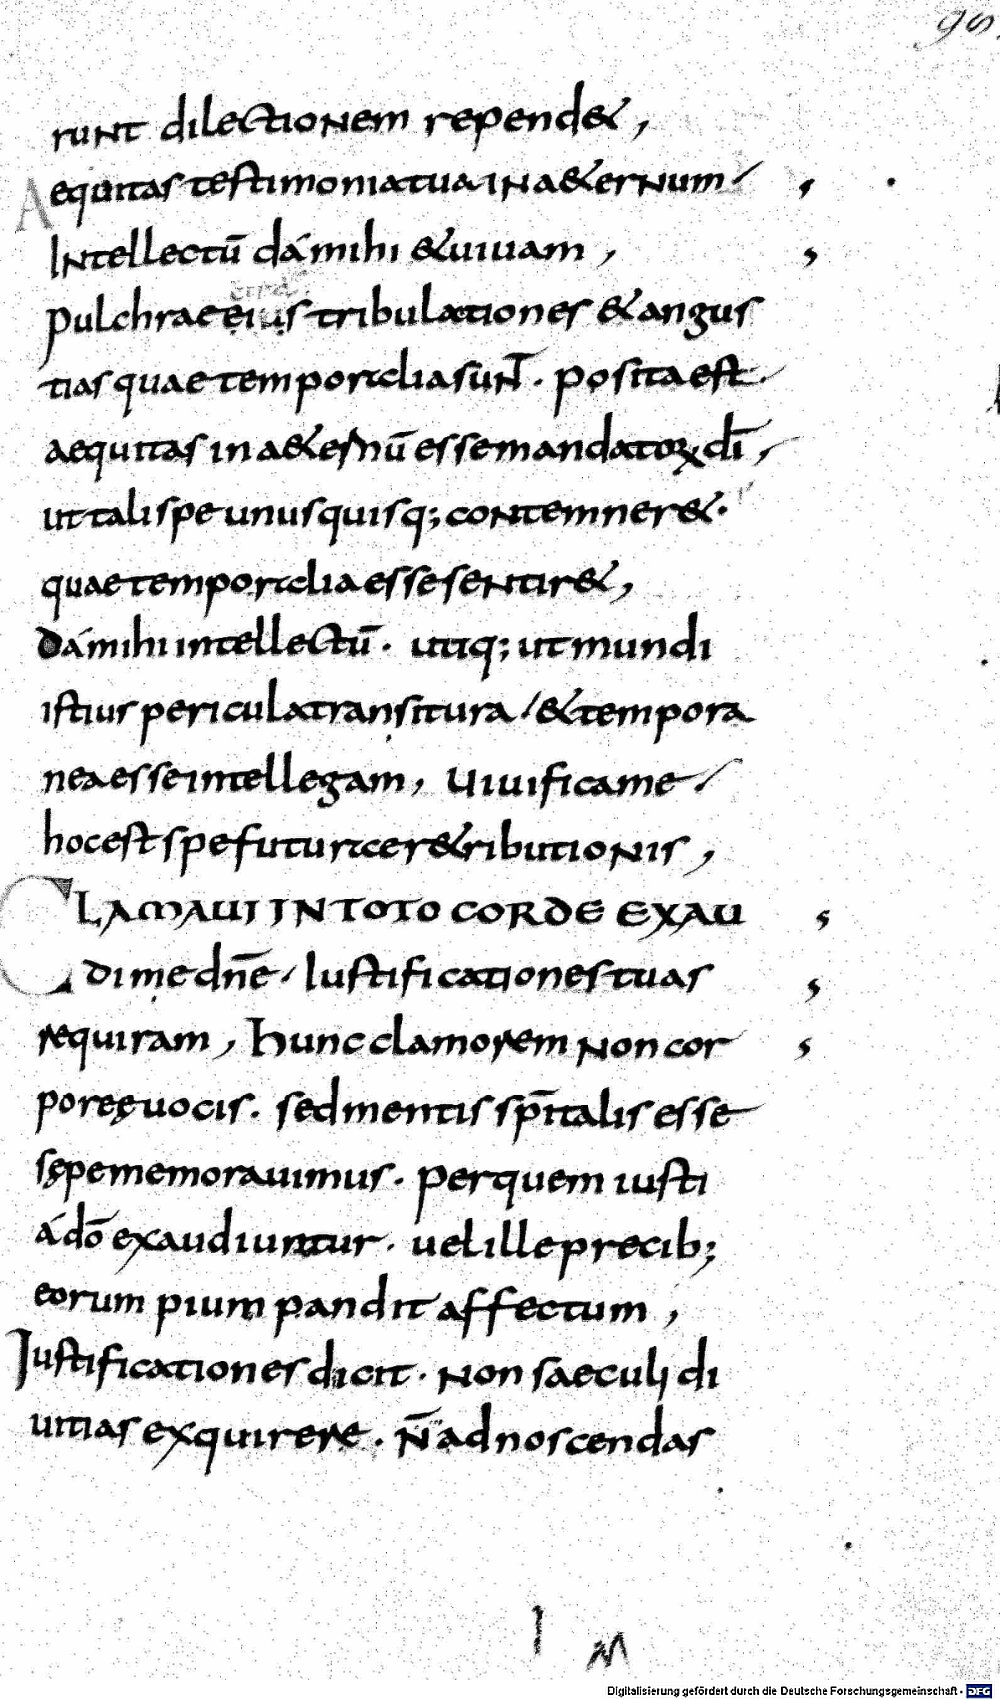 95.
runt dilectionem repende&,
Aequitas testimonia tua in a&ernum
Intellectū dá mihi & uiuam,
Pulchrae eius tribulationes & angus
tias quae temporalia sunt. posita est
aequitas in a&ernū esse mandatoꝝ dī,
ut tali spe unusquisq; contemner&.
quae temporalia esse sentir&,
dá mihi intellectū. utiq; ut mundi
istius pericula transitura / & tempora
nea esse intellegam, Uiuifica me /
hoc est spe futurae r&ributionis,
CLAMAUI IN TOTO CORDE EXAU
di me dn̄e / Iustificationes tuas
requiram, hunc clamorem non cor
poreę uocis. sed mentis sp̄italis esse
sępe memorauimus. per quem iusti
á dō exaudiuntur. uel ille precib;
eorum pium pandit affectum,
Iustificationes dicit. Non saeculi di
uitias exquirere. N̄ ad noscendas
I
Digitalisierung gefördert durch die Deutsche Forschungsgemeinschaft - DFG